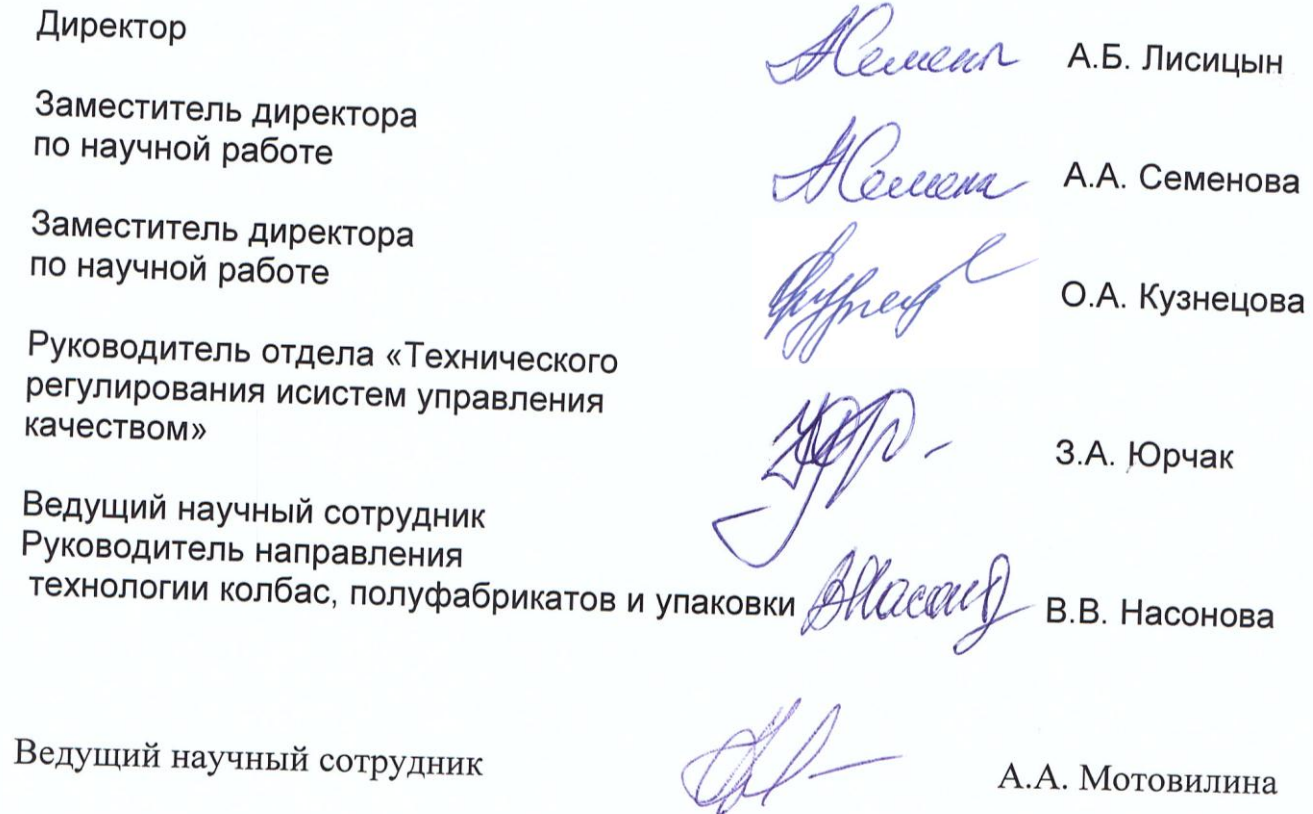 Директор А.Б. Лисицын
Заместитель директора
по научной работе А.А. Семенова
Заместитель директора
по научной работе О.А. Кузнецова
Руководитель отдела «Технического
регулирования исистем управления
качеством» З.А. Юрчак
Ведущий научный сотрудник
Руководитель направления
технологии колбас, полуфабрикатов и упаковки В.В. Насонова
Ведущий научный сотрудник А.А. Мотовилина